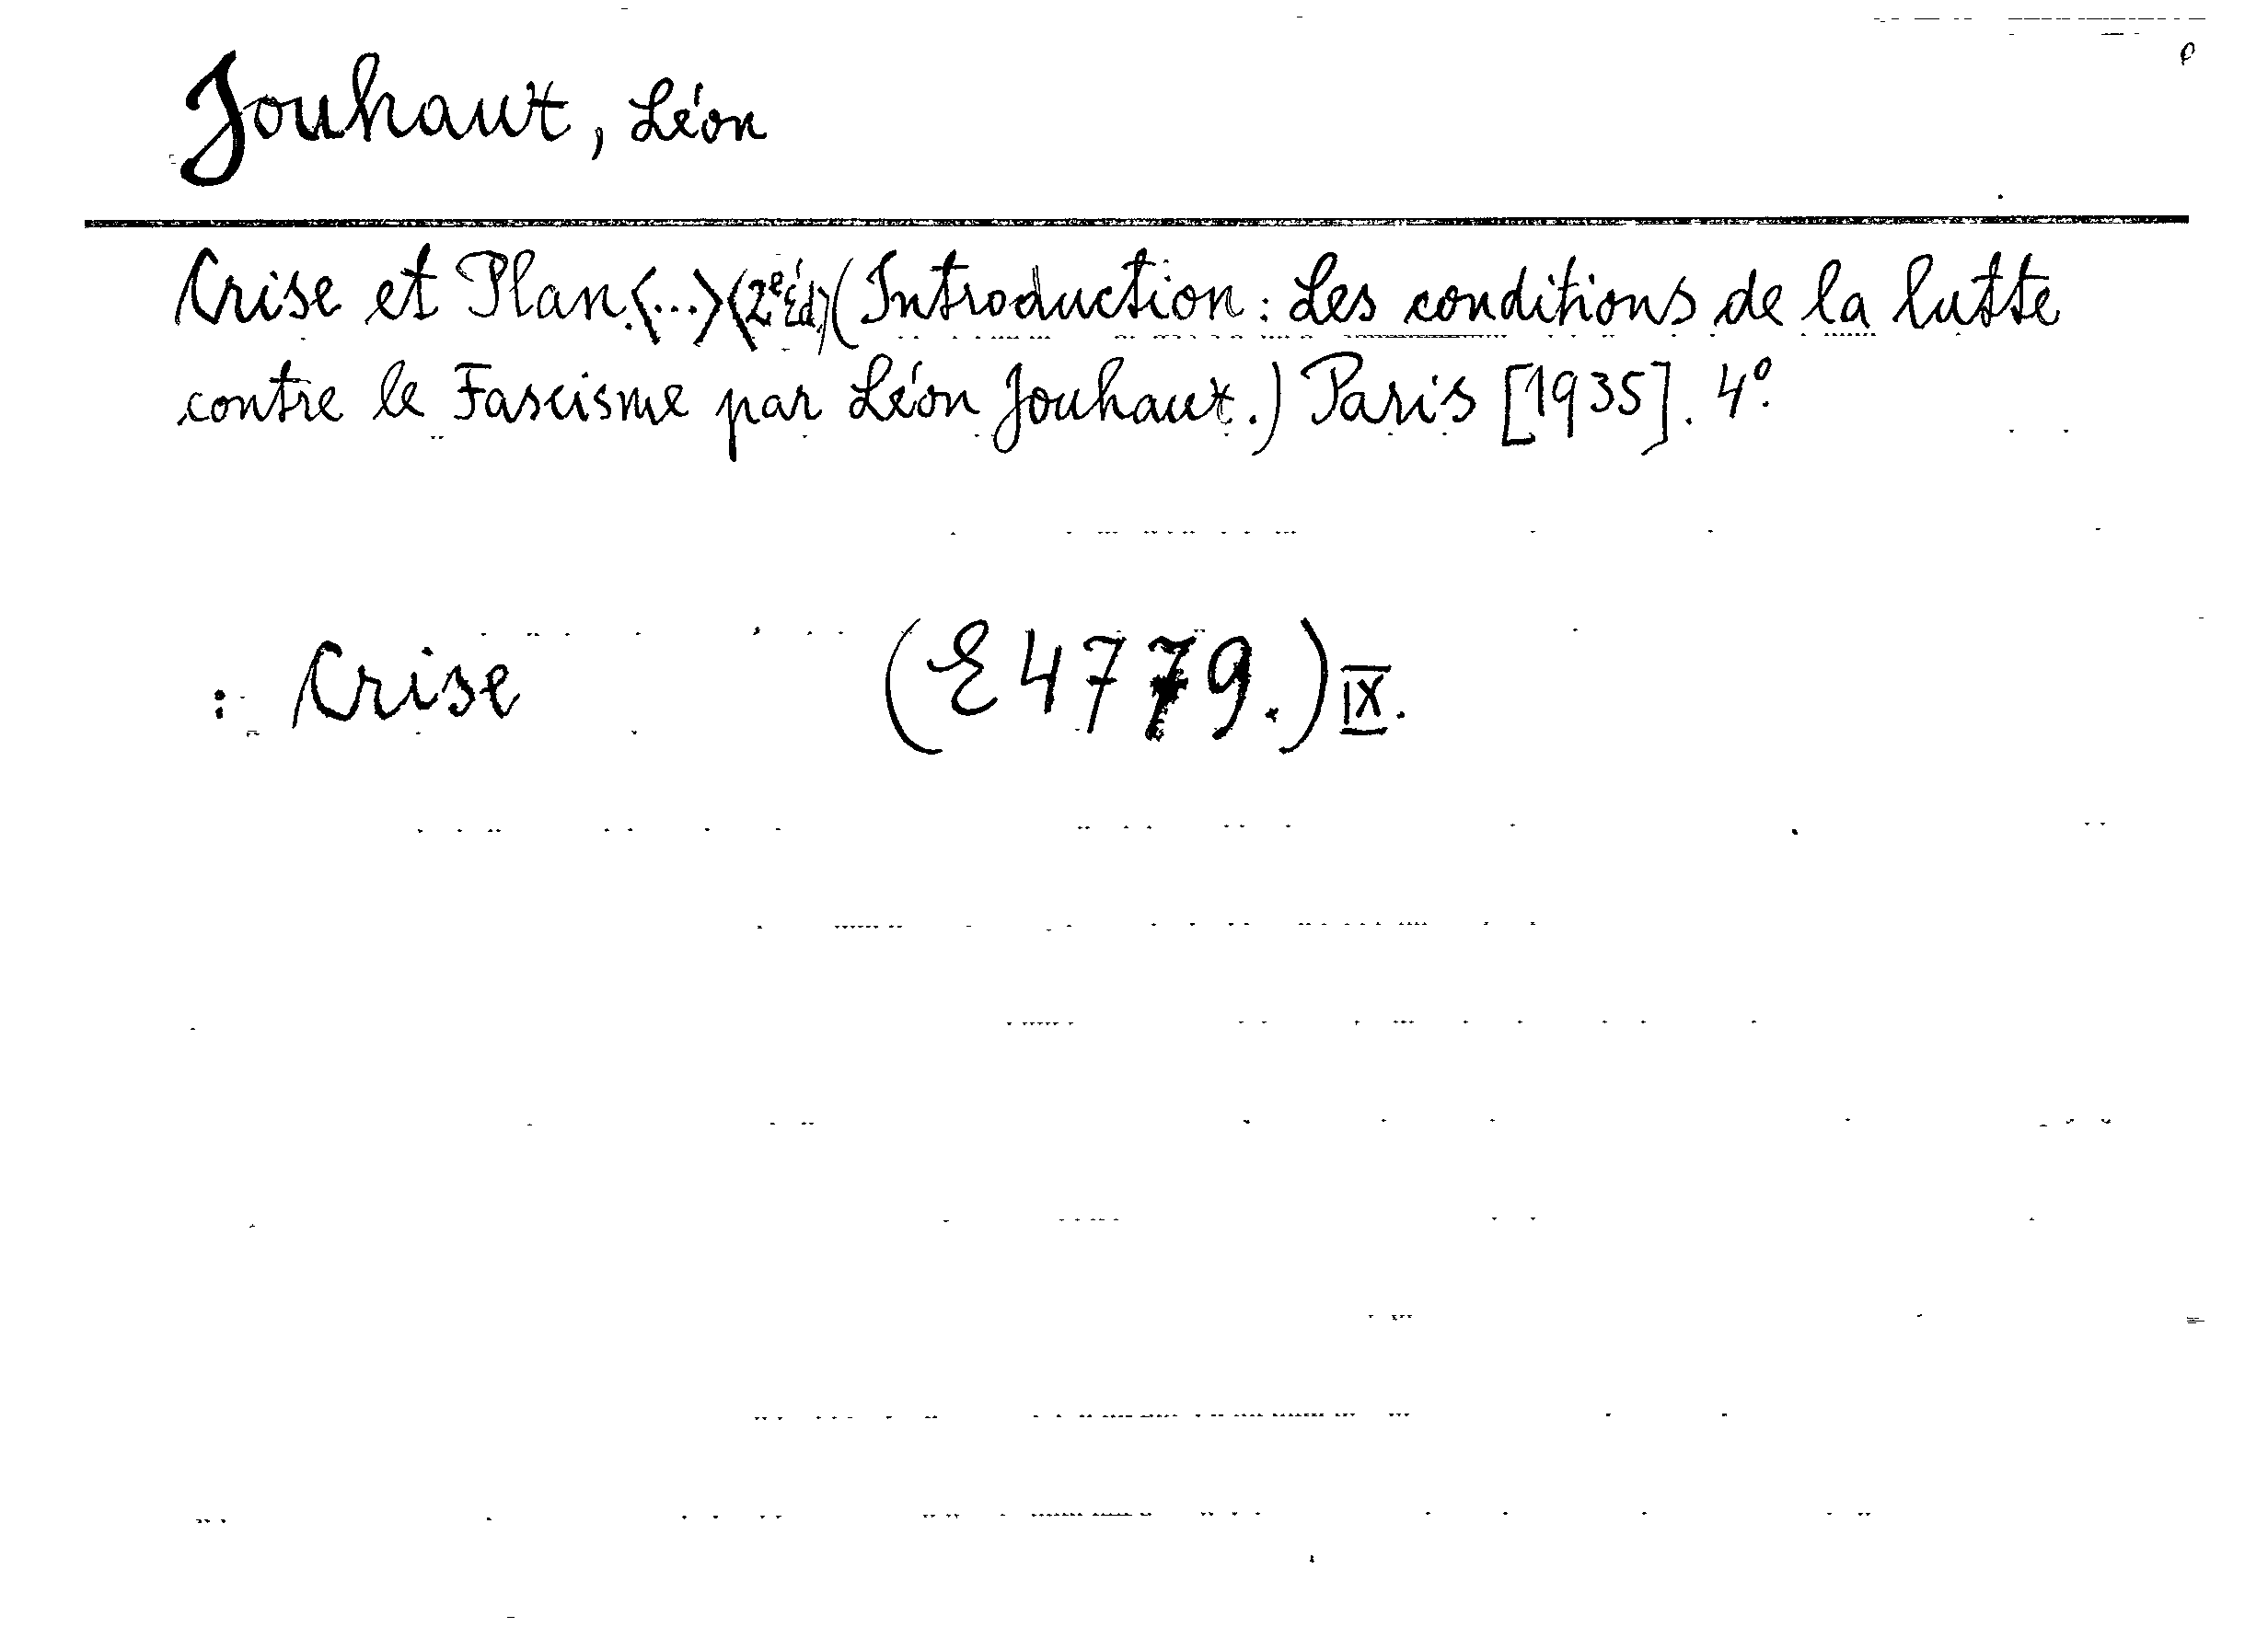 Jouhaux, Léon
Crise et Plan.<...><2e éd>(Introduction: Les conditions de la lutte
contre le Fascisme par Léon Jouhaux.) Paris [1935]. 4o.
: Crise (E 4779.) IX.